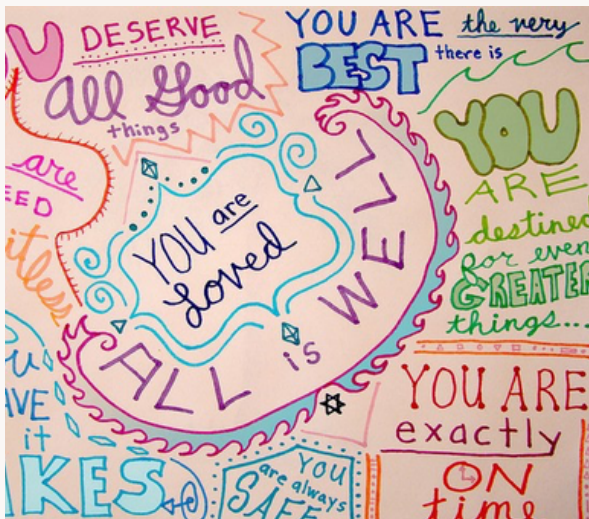 U DESERVE
all Good
things
YOU ARE the very
BEST there is
YOU
ARE
destined
for even
GREATER
things...
are
EED
itless
YOU are
Loved
ALL is WELL
U
AVE
it
AKES
YOU
are always
SAFE
YOU ARE
exactly
ON
time